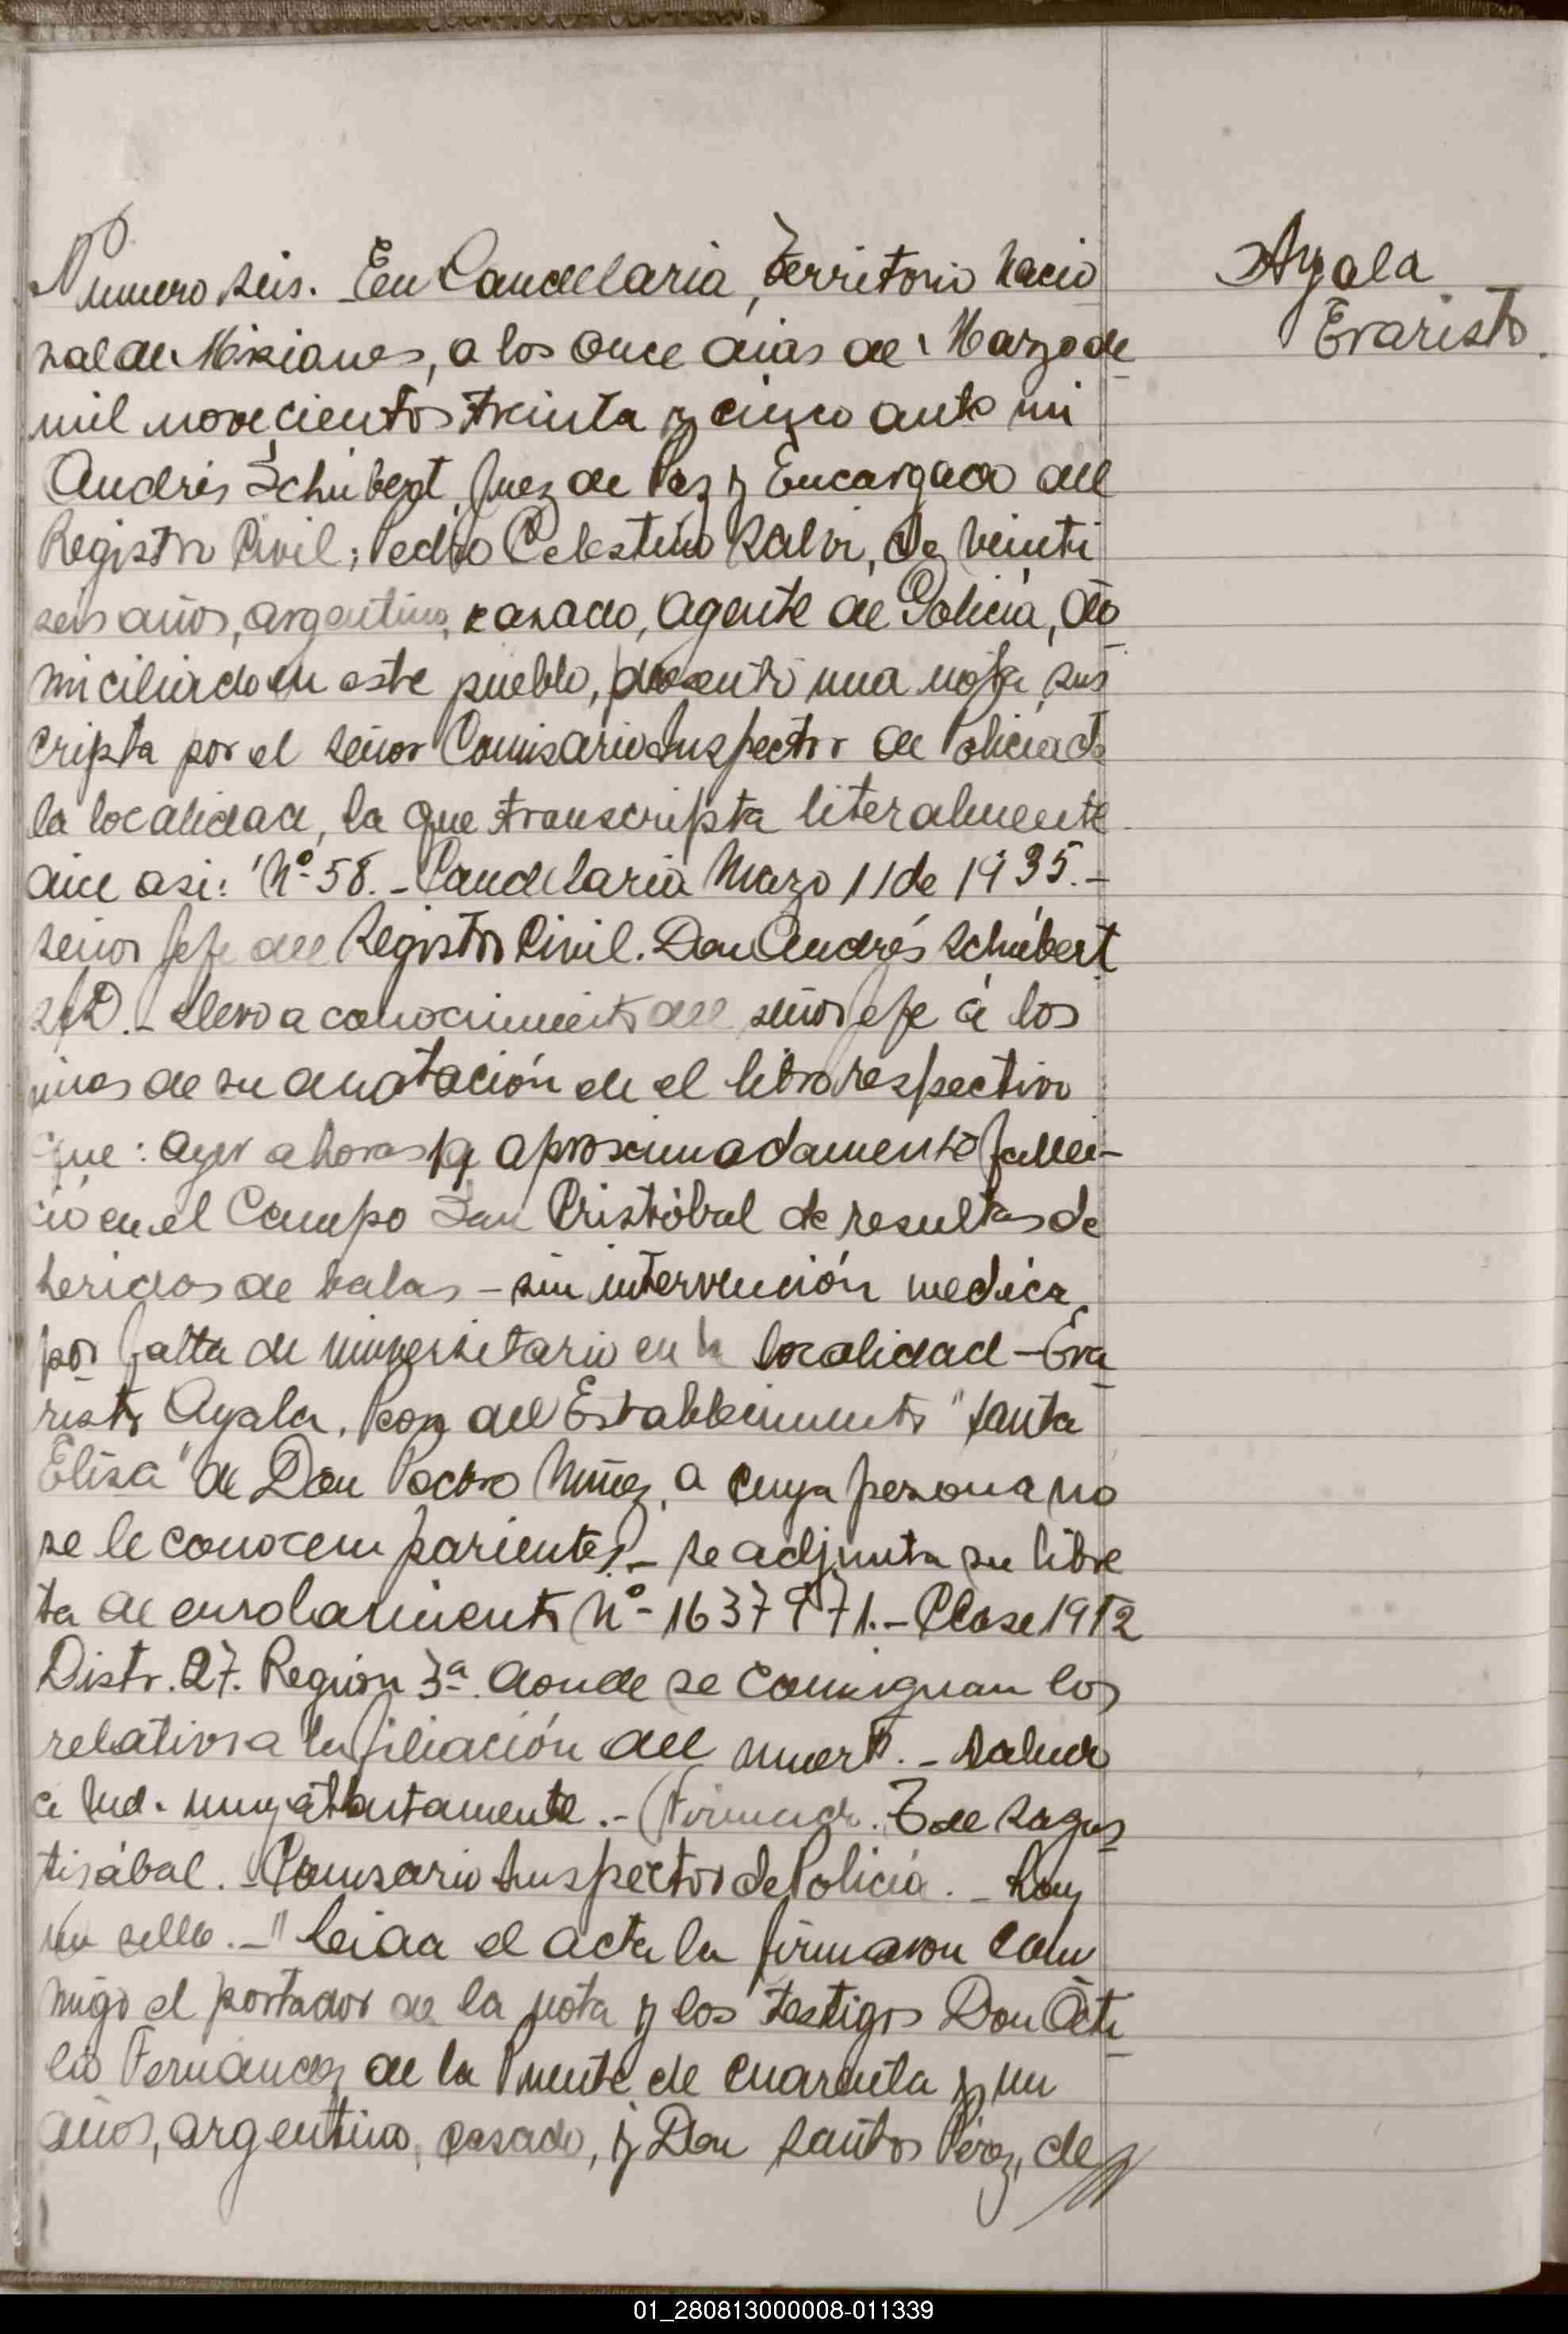 Numero seis. En Candelaria, Territorio Nacio
nal de Misiones, a los once dias de Marzo de
mil novecientos treinta y cinco ante mi
Andrés Schubert, Juez de Paz y Encargado del
Registro Civil; Pedro Celestino Salvi, de veinti
seis años, argentino, casado, agente de Policia, do
miciliado en este pueblo, presentó una nota sus
cripta por el señor Comisario Inspector de Policia de
la localidad, la que transcripta literalmente
dice asi: "Nº 58. - Candelaria Marzo 11 de 1935. -
Señor Jefe del Registro Civil. Don Andrés Schubert
S/D. - Elevo a conocimiento del señor Jefe á los
fines de su anotación en el libro respectivo
que: ayer a horas 19 aproximadamente falle-
ció en el Campo San Cristóbal de resultas de
heridas de balas - sin intervención medica
por falta de universitario en la localidad - Eva
risto Ayala, Peon del Establecimiento "Santa
Elisa" de Don Pedro Nuñez, a cuya persona no
se le conocen parientes. - Se adjunta su libre
ta de enrolamiento Nº - 1637971. - Clase 1912
Distr. 27. Región 3ª. donde se consignan los
relativos a la filiación del muerto. - Saludo
a Ud. muy attentamente. - (Firmado. T de Sagas
tizábal. - Comisario Inspector de Policia. - Hay
un sello. -" Leida el acta la firmaron con
migo el portador de la nota y los testigos Don Oti
lio Fernandez de la Puente de cuarenta y un
años, argentino, casado, y Don Santos Pérez, de
Ayala
Evaristo.
01_280813000008-011339